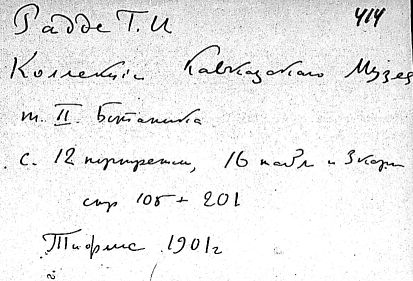 Радде Г. И 414
Коллекціи Кавказскаго Музея
т. II. Ботаника
с. 12 портретами, 16 табл и 3 карт
стр 105 + 201
Тифлис 1901г